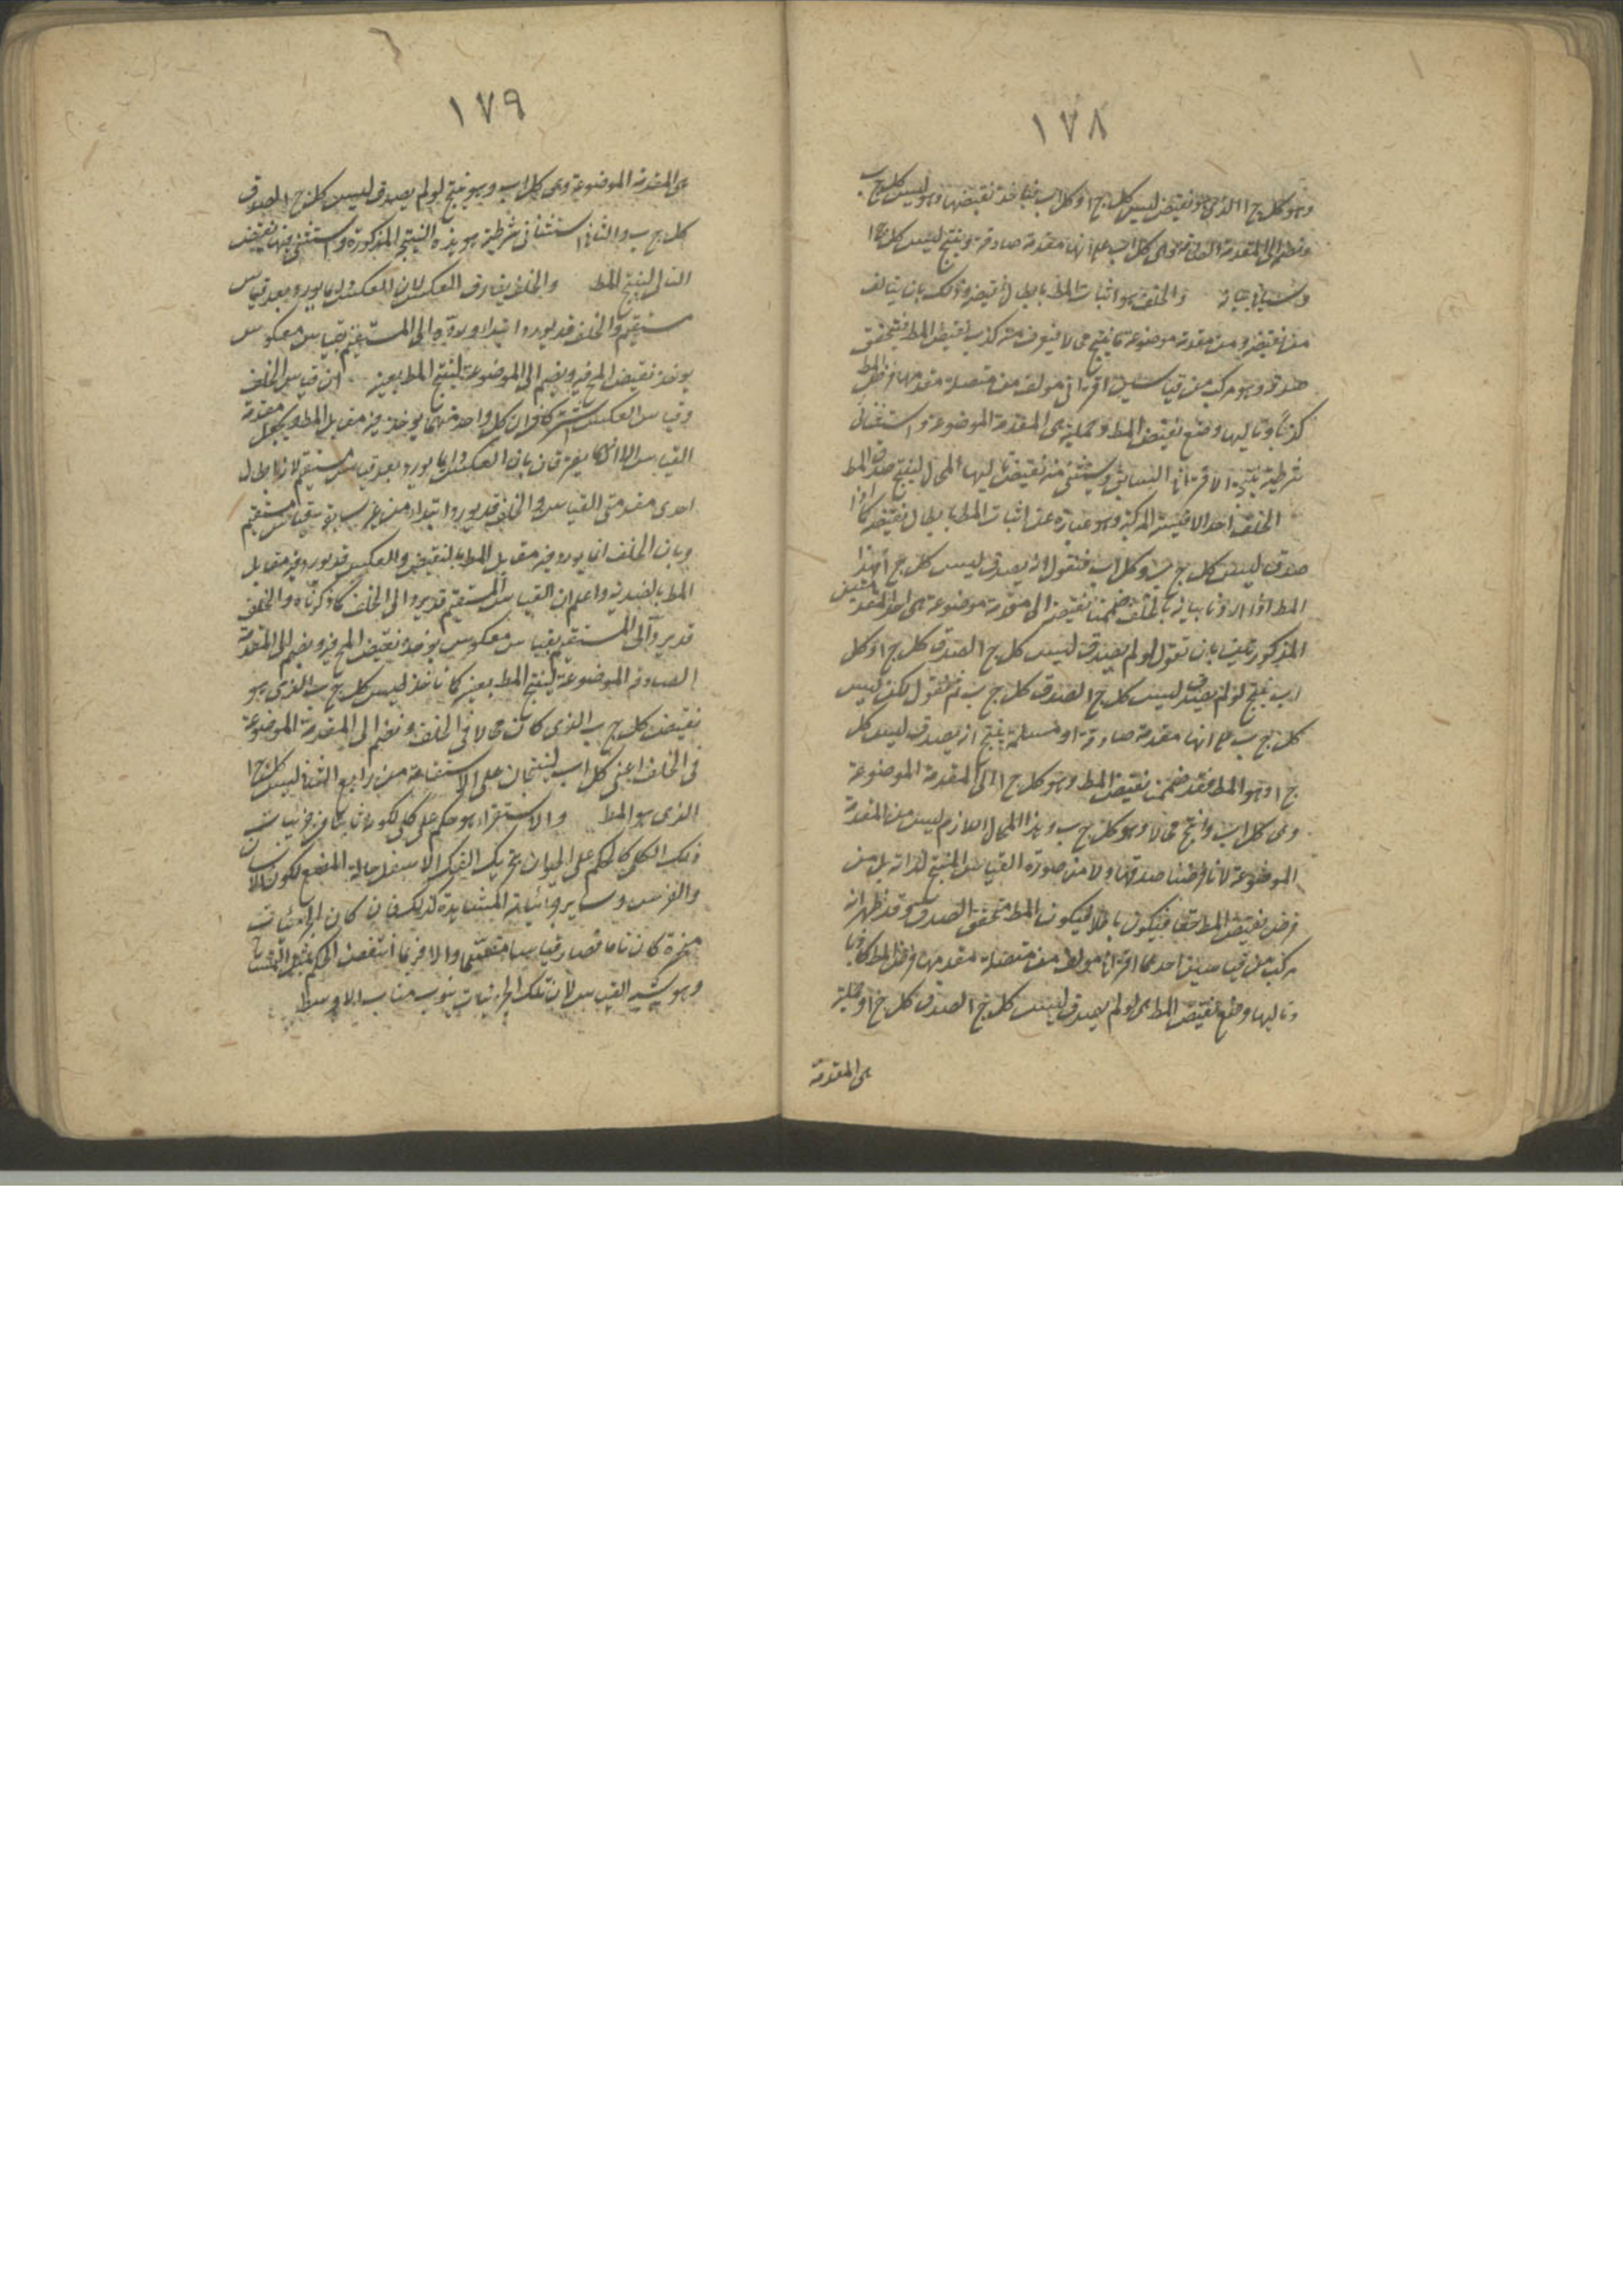 ١٧٨
وهو كل ج ا الذي هو نقيض ليس كل ج ا وكل اب فناخذ نقيضها وهو ليس كل ج ب
ونضم الى المقدمة الصادقة وهي كل اب على انها مقدمة صادقة وينتج ليس كل ج ا
والخلف هو اثبات المط بابطال نقيضه وذلك بان يتالف
من نقيضه ومن مقدمة موضوعة ما ينتج محالا فيعرف منه كذب نقيض المط فيتحقق
صدقه وهو مركب من قياسين اقتراني مولف من متصلة مقدمها فرض المط
كذبا وتاليها وضع نقيض المط وحملية هي المقدمة الموضوعة واستثنائي
شرطية نتيجة الاقتراني السابق ويستثنى منه نقيض تاليها المحال لينتج صدق المط
الخلف احد الاقيسة المركبة وهو عبارة عن اثبات المط بابطال نقيضه كما اذا
صدق ليس كل ج ب وكل اب فنقول انه يصدق ليس كل ج ا فهذا
المط اذا اردنا بيانه بالخلف ضممنا نقيضه الى مقدمة موضوعة هي احد المقدمتين
المذكورتين بان نقول لو لم يصدق ليس كل ج ا لصدق كل ج ا وكل
اب ينتج لو لم يصدق ليس كل ج ا لصدق كل ج ب ثم نقول لكن ليس
كل ج ب على انها مقدمة صادقة او مسلمة ينتج انه يصدق ليس كل
ج ا وهو المط فقد ضممنا نقيض المط وهو كل ج ا الى المقدمة الموضوعة
وهي كل اب وانتج محالا وهو كل ج ب وهذا المحال اللازم ليس من المقدمة
الموضوعة لانا فرضنا صدقها ولا من صورة القياس المنتج لذاته بل من
فرض نقيض المط حقا فيكون باطلا فيكون المط متحقق الصدق وقد ظهر انه
مركب من قياسين احدهما اقتراني مولف من متصلة مقدمها فرض المط كاذبا
وتاليها وضع نقيض المط هي لو لم يصدق ليس كل ج ا لصدق كل ج ا وحملية
هي المقدمة
١٧٩
هي المقدمة الموضوعة وهي كل اب وهو ينتج لو لم يصدق ليس كل ج ا لصدق
كل ج ب والثاني استثنائي شرطية هو هذه النتيجة المذكورة واستثنى منها نقيض
التالي لينتج المط والخلف يفارق العكس لان العكس انما يورد بعد قياس
مستقيم والخلف قد يورد ابتداء ورده الى المستقيم بقياس معكوس
يوخذ نقيض المحال فيه ويضم الى الموضوعة لينتج المط بعينه ان قياس الخلف
وقياس العكس اشتركا في ان كل واحد منهما يوخذ فيه مقابل المط ويجعل مقدمة
القياس الا انهما يفترقان بان العكس انما يورد بعد قياس مستقيم لانه ابطال
احدى مقدمتي القياس والخلف قد يورد ابتداء من غير سابقة قياس مستقيم
وبان الخلف انما يورد فيه مقابل المط بالنقيض والعكس قد يورد فيه مقابل
المط بالضدية واعلم ان القياس المستقيم قد يرد الى الخلف كما ذكرناه والخلف
قد يرد الى المستقيم بقياس معكوس يوخذ نقيض المحال فيه ويضم الى المقدمة
الصادقة الموضوعة لينتج المط بعينه كما ناخذ ليس كل ج ب الذي هو
نقيض كل ج ب الذي كان محالا في الخلف ونضم الى المقدمة الموضوعة
في الخلف اعني كل اب لينتجان على الاستقامة من رابع الثاني ليس كل ج ا
الذي هو المط والاستقراء هو حكم على كلي لكونه ثابتا في جزئيات
ذلك الكلي كالحكم على الحيوان بتحريك الفك الاسفل حالة المضغ لكون الانسان
والفرس وساير جزئياته المشاهدة كذلك فان كان الجزئيات
منحصرة كان تاما فصار قياسا مقسما والا فربما انتقض الحكم
وهو يشبه القياس لان تلك الجزئيات ينوب مناب الاوسط